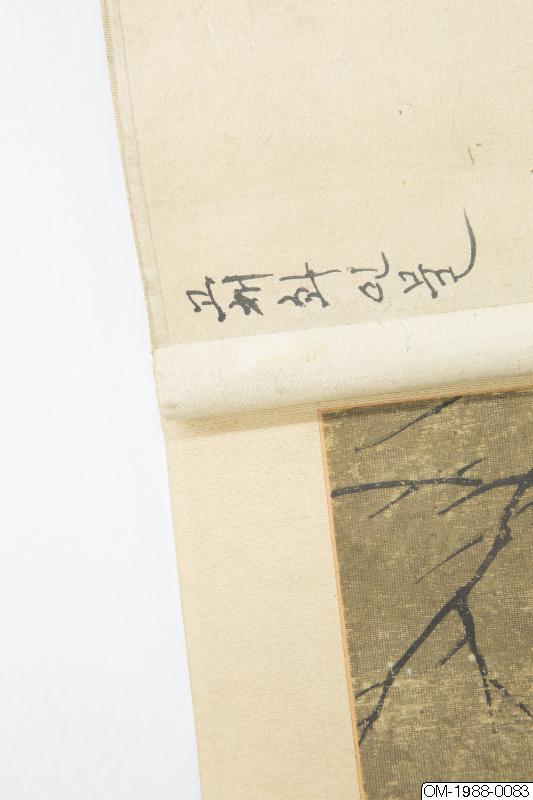 화인물
OM-1988-0083